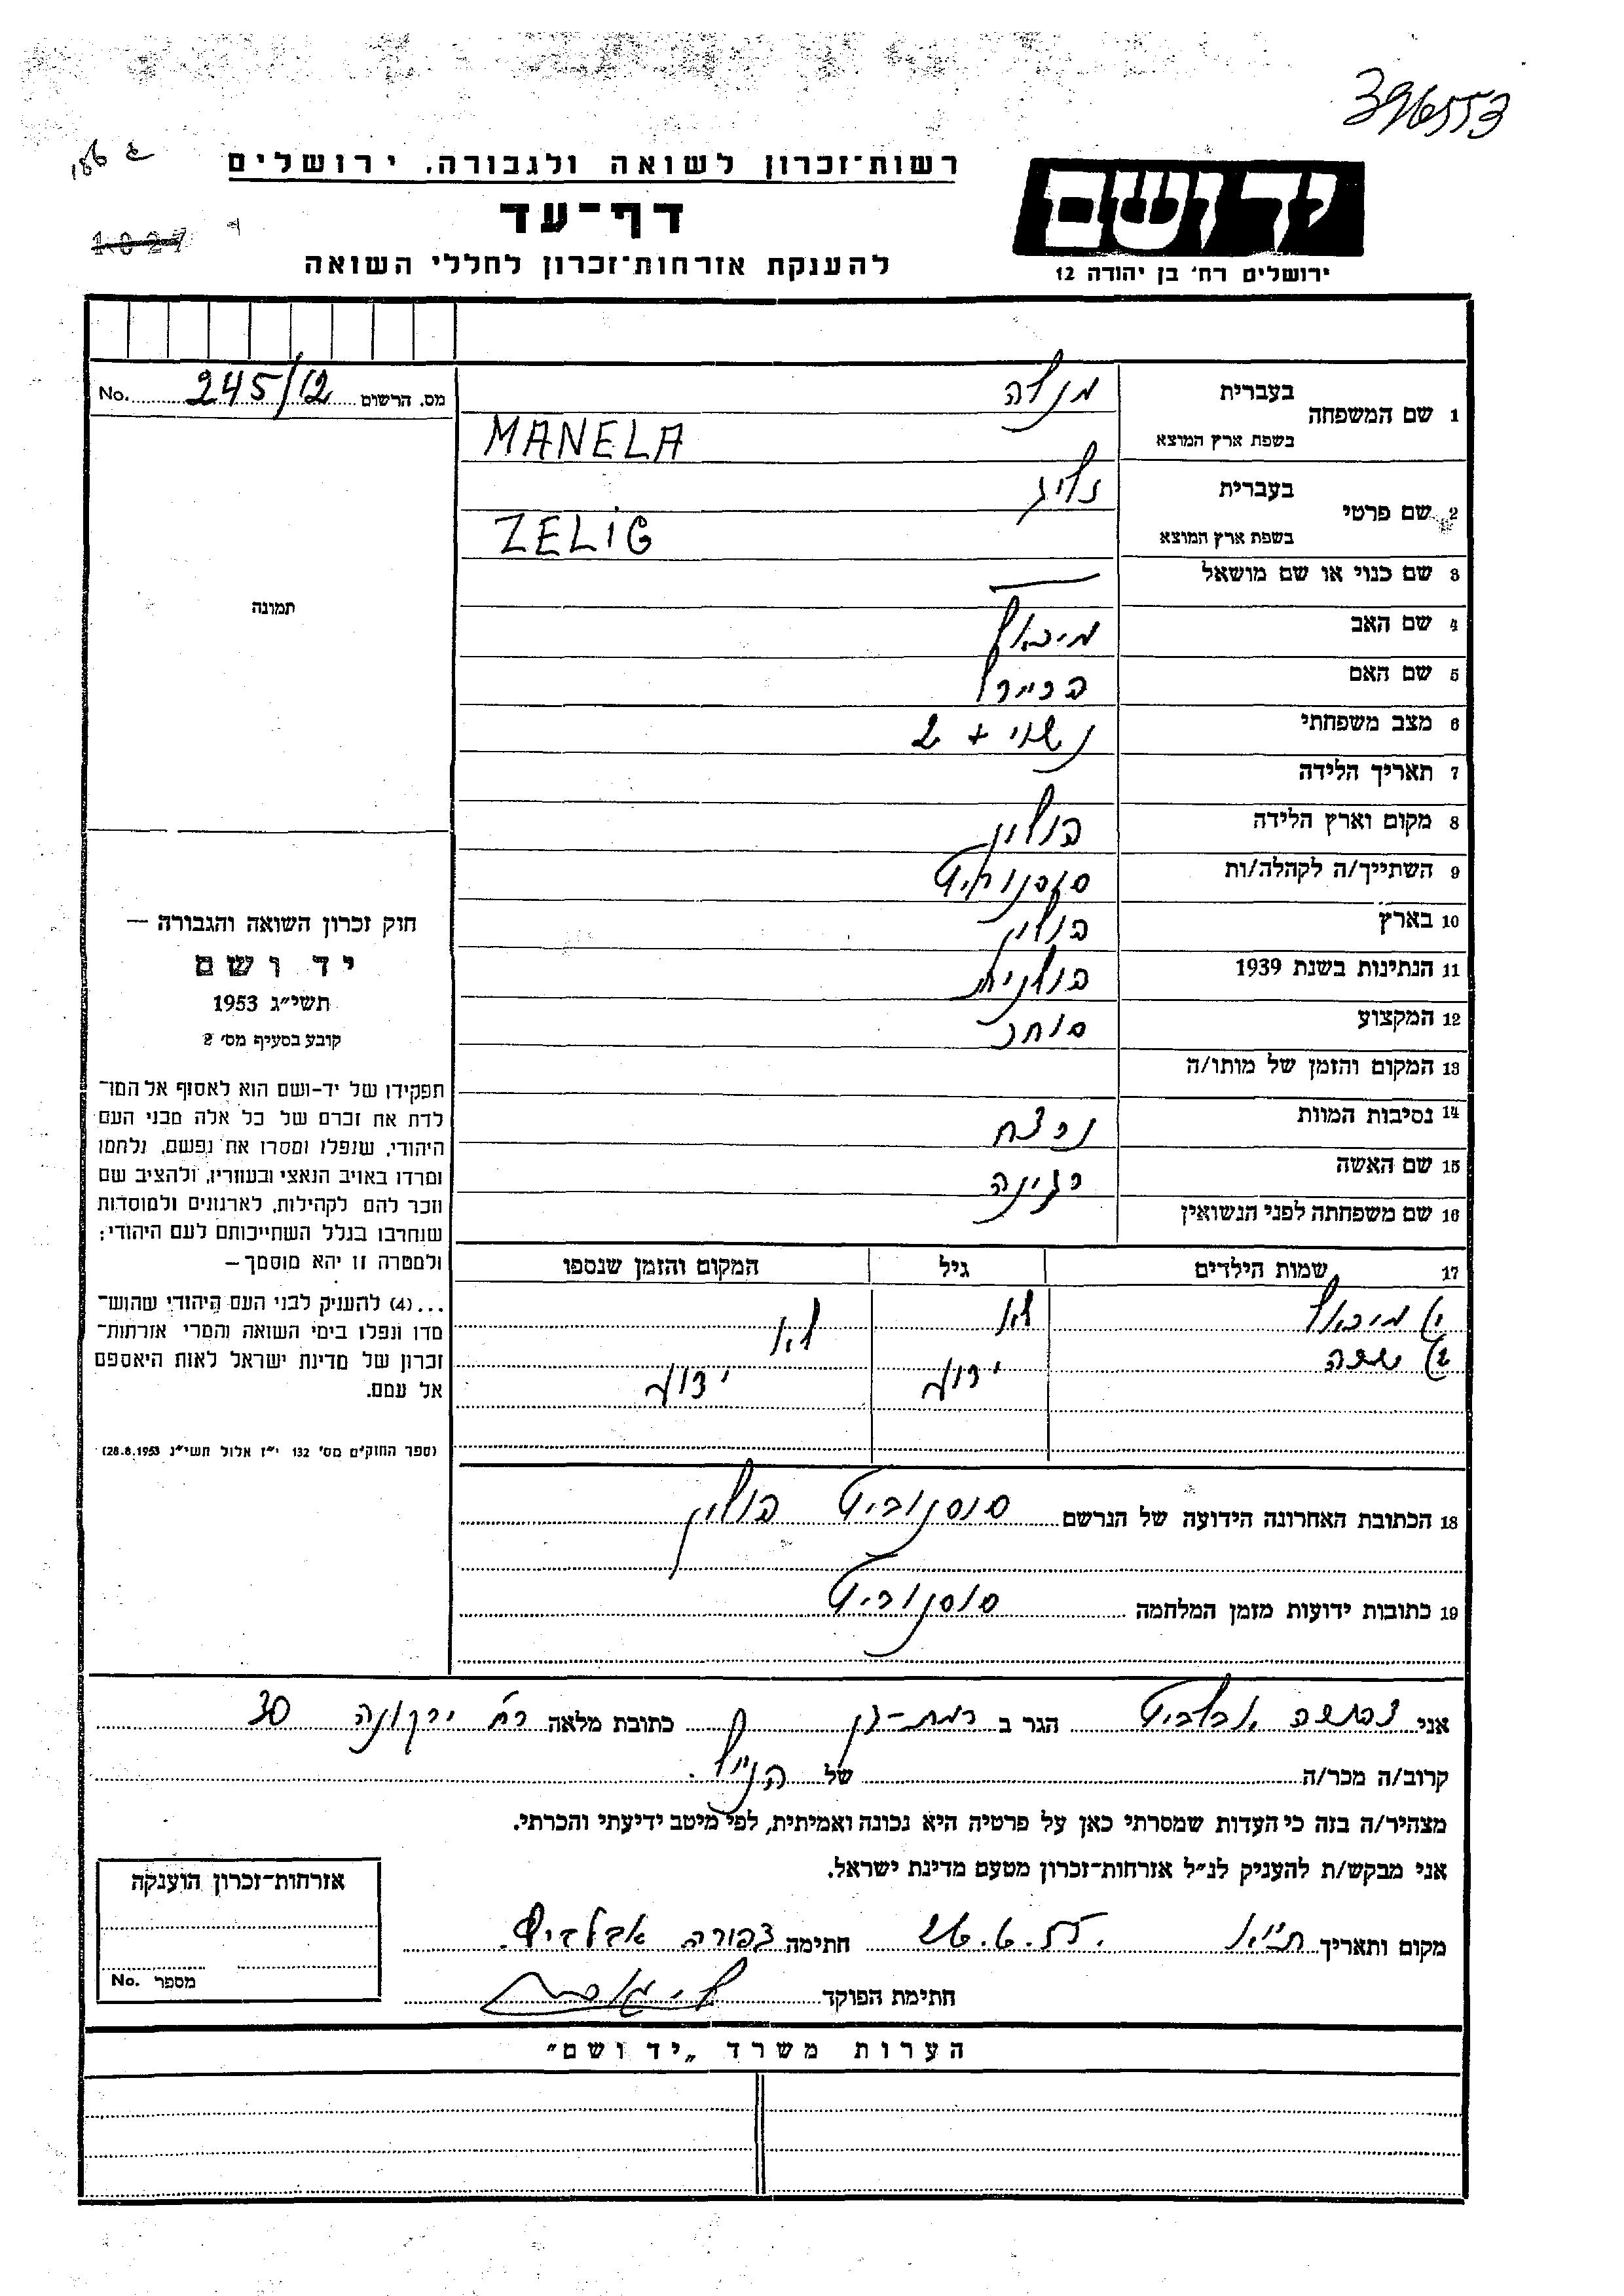 396553
רשות־זכרון לשואה ולגבורה, ירושלים
דף־עד
1027
להענקת אזרחות־זכרון לחללי השואה
יד ושם
ירושלים רח' בן יהודה 12
מס. הרשום 245/12 No.
1 שם המשפחה
בעברית מנלה
בשפת ארץ המוצא MANELA
2 שם פרטי
בעברית זליג
בשפת ארץ המוצא ZELIG
3 שם כנוי או שם מושאל —
4 שם האב מיכאל
5 שם האם
6 מצב משפחתי נשוי + 2
7 תאריך הלידה
8 מקום וארץ הלידה פולין
9 השתייך/ה לקהלה/ות סוסנוביץ
10 בארץ פולין
11 הנתינות בשנת 1939 פולנית
12 המקצוע סוחר
13 המקום והזמן של מותו/ה
14 נסיבות המוות נרצח
15 שם האשה רגינה
16 שם משפחתה לפני הנשואין
17 שמות הילדים גיל המקום והזמן שנספו
1) מיכאל לא לא
2) ידוע ידוע
18 הכתובת האחרונה הידועה של הנרשם סוסנוביץ פולין
19 כתובות ידועות מזמן המלחמה סוסנוביץ
תמונה
חוק זכרון השואה והגבורה —
יד ושם
תשי״ג 1953
קובע בסעיף מס' 2
תפקידו של יד-ושם הוא לאסוף אל המו־
לדת את זכרם של כל אלה מבני העם
היהודי, שנפלו ומסרו את נפשם, נלחמו
ומרדו באויב הנאצי ובעוזריו, ולהציב שם
וזכר להם לקהילות, לארגונים ולמוסדות
שנחרבו בגלל השתייכותם לעם היהודי;
ולמטרה זו יהא מוסמך —
...(4) להעניק לבני העם היהודי שהוש־
מדו ונפלו בימי השואה והמרי אזרחות־
זכרון של מדינת ישראל לאות היאספם
אל עמם.
(ספר החוקים מס' 132 י״ז אלול תשי״ג 28.8.1953)
אני צפורה אבלביץ הגר ב רמת-גן כתובת מלאה רח' ירקונה 30
קרוב/ה מכר/ה של הנ״ל.
מצהיר/ה בזה כי העדות שמסרתי כאן על פרטיה היא נכונה ואמיתית, לפי מיטב ידיעתי והכרתי.
אני מבקש/ת להעניק לנ״ל אזרחות-זכרון מטעם מדינת ישראל.
מקום ותאריך ת״א 26.6.55. חתימה צפורה אבלביץ
חתימת הפוקד
אזרחות-זכרון הוענקה
מספר No.
הערות משרד „יד ושם״